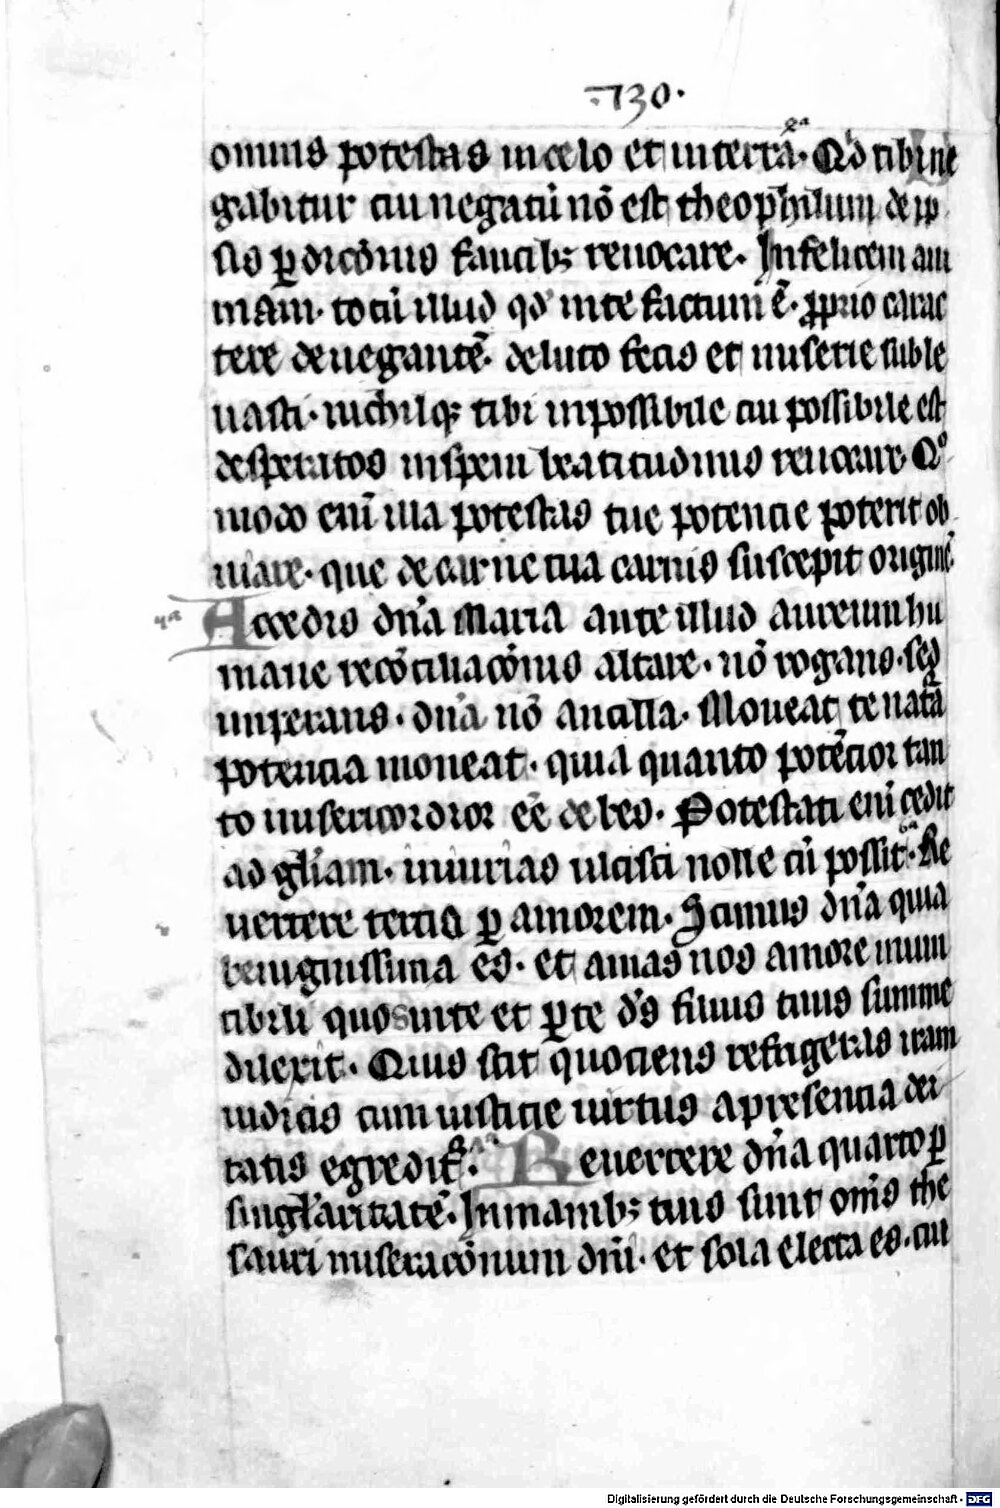 ·130·
omnis potestas in celo et in terrā. Qđ tibi ne
gabitur cui negatū nō est theophilum de ip
sis ꝑdicōnis faucibꝫ reuocare. Infelicem ani
mam. totū illud qđ in te factum ē. ꝓprio carac
tere denegantē. de luto fecis et miserie suble
uasti. nichilqꝫ tibi inpossibile cui possibile est
desperatos in spem beatitudinis reuocare. Qº
modo enī illa potestas tue potencie poterit ob
uiare. que de carne tua carnis suscepit originē.
Accedis dn̄a Maria ante illud aureum hu
mane recōciliacōnis altare. nō rogans. sed
imperans. dn̄a nō ancilla. Moueat te natā
potencia moneat. quia quanto potēcior tan
to misericordior eē debes. Potestati enī cedit
ad gl̄iam. iniurias ulcisci nolle cū possit. Re
uertere tercio ꝑ amorem. Scimus dn̄a quia
benignissima es. et amas nos amore inuin
cibili quos in te et ꝑ te dȝ filius tuus summe
dilexit. Quis scit quociens refrigeras iram
iudicis cum iusticie uirtus a presencia dei
tatis egredit᷑. Reuertere dn̄a quarto ꝑ
singl̄aritatē. In manibꝫ tuis sunt om̄s the
sauri miseracōnum dn̄i. et sola electa es. cui